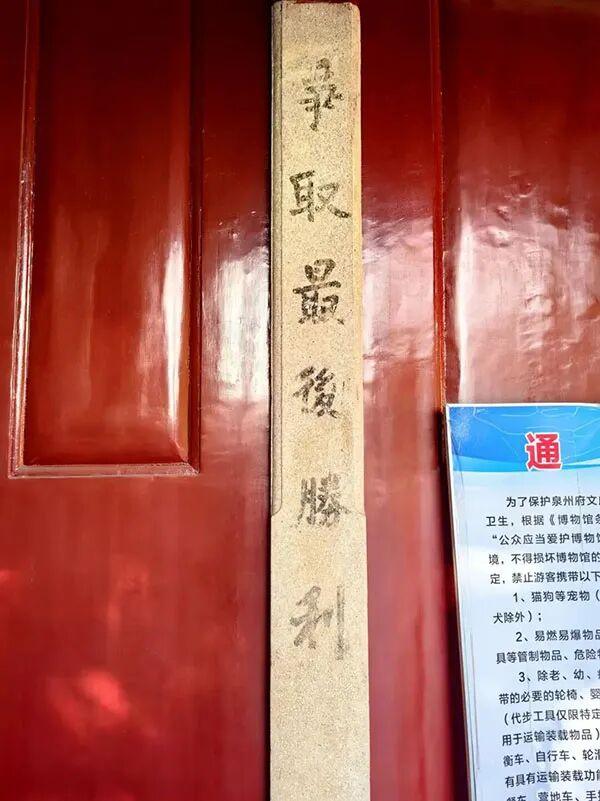 爭取最後勝利
通
为了保护泉州府文
卫生，根据《博物馆条
“公众应当爱护博物馆
境，不得损坏博物馆的
定，禁止游客携带以下
1、猫狗等宠物（
犬除外）；
2、易燃易爆物品
具等管制物品、危险物
3、除老、幼、
带的必要的轮椅、婴
（代步工具仅限特定
用于运输装载物品）
衡车、自行车、轮滑
有具有运输装载功能
餐车、营地车、手推